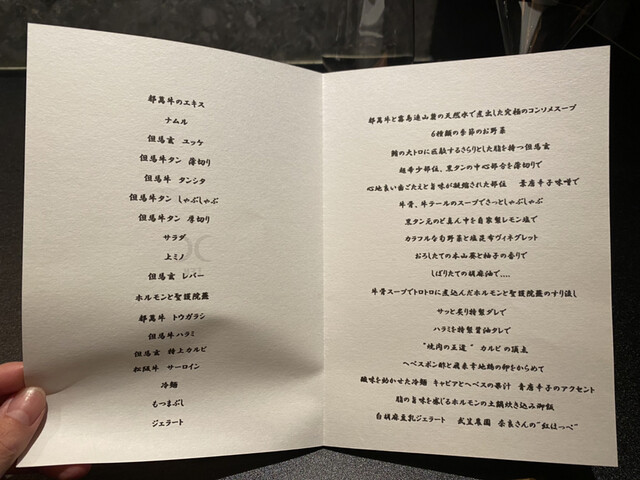 都萬牛のエキス
ナムル
但馬玄 ユッケ
但馬牛タン 薄切り
但馬牛 タンシタ
但馬牛タン しゃぶしゃぶ
但馬牛タン 厚切り
サラダ
上ミノ
但馬玄 レバー
ホルモンと聖護院蕪
都萬牛 トウガラシ
但馬牛ハラミ
但馬玄 特上カルビ
松阪牛 サーロイン
冷麺
もつまぶし
ジェラート
都萬牛と霧島連山麓の天然水で煮出した究極のコンソメスープ
6種類の季節のお野菜
鮪の大トロに匹敵するさらりとした脂を持つ但馬玄
超希少部位、黒タンの中心部分を薄切りで
心地良い歯ごたえと旨味が凝縮された部位 青唐辛子味噌で
牛骨、牛テールのスープでさっとしゃぶしゃぶ
黒タン元のど真ん中を自家製レモン塩で
カラフルな旬野菜と塩昆布ヴィネグレット
おろしたての本山葵と柚子の香りで
しぼりたての胡麻油で....
牛骨スープでトロトロに煮込んだホルモンと聖護院蕪のすり流し
サッと炙り特製ダレで
ハラミを特製醤油ダレで
"焼肉の王道" カルビの頂点
ヘベスポン酢と飛来幸地鶏の卵をからめて
酸味を効かせた冷麺 キャビアとヘベスの果汁 青唐辛子のアクセント
脂の旨味を感じるホルモンの土鍋炊き込み御飯
白胡麻豆乳ジェラート 武笠農園 奈良さんの"紅ほっぺ"